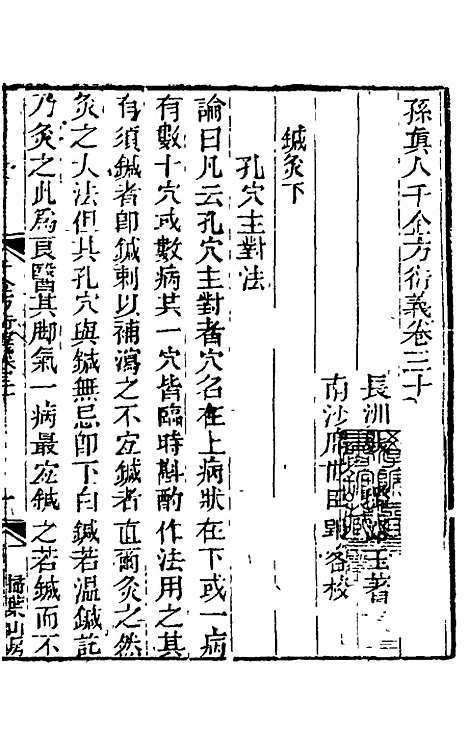 孫真人千金方衍義卷三十
長洲 玉著
南沙席世臣 校
鍼灸下
孔穴主對法
論曰凡云孔穴主對者穴名在上病狀在下或一病
有數十穴或數病共一穴皆臨時斟酌作法用之其
有須鍼者即鍼刺以補瀉之不宜鍼者直爾灸之然
灸之大法但其孔穴與鍼無忌即下白鍼若溫鍼訖
乃灸之此爲良醫其脚氣一病最宜鍼之若鍼而不
掃葉山房